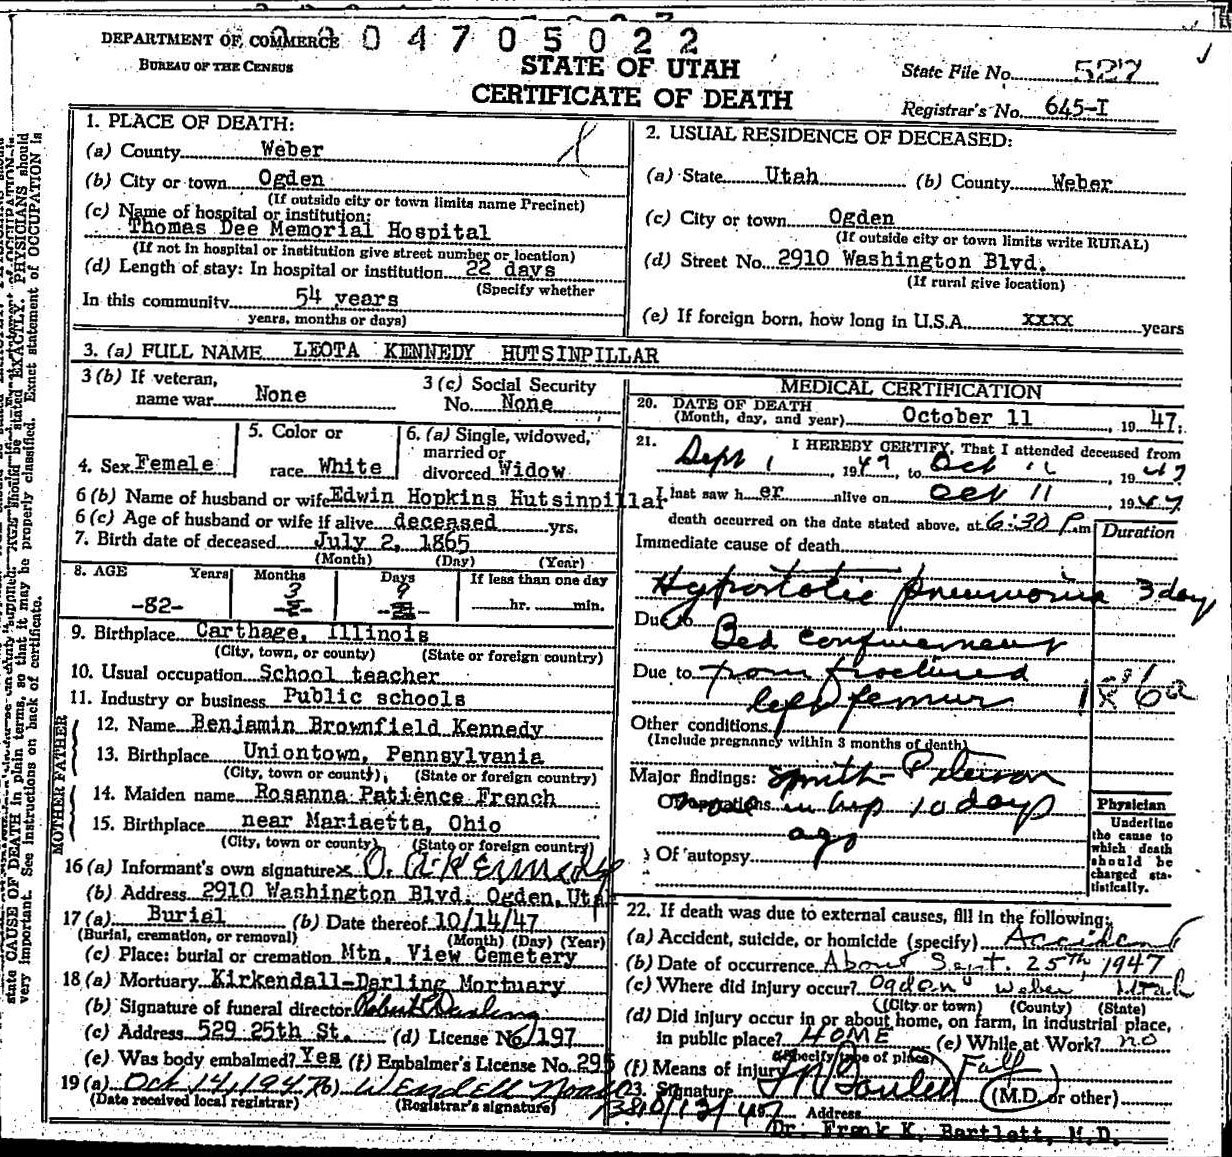 004705022
DEPARTMENT OF COMMERCE
BUREAU OF THE CENSUS
STATE OF UTAH
CERTIFICATE OF DEATH
State File No. 527
Registrar's No. 645-I
1. PLACE OF DEATH:
(a) County Weber
(b) City or town Ogden
(If outside city or town limits name Precinct)
(c) Name of hospital or institution:
Thomas Dee Memorial Hospital
(If not in hospital or institution give street number or location)
(d) Length of stay: In hospital or institution 22 days
(Specify whether
In this community 54 years
years, months or days)
2. USUAL RESIDENCE OF DECEASED:
(a) State Utah (b) County Weber
(c) City or town Ogden
(If outside city or town limits write RURAL)
(d) Street No. 2910 Washington Blvd.
(If rural give location)
(e) If foreign born, how long in U.S.A. xxxx years
3. (a) FULL NAME LEOTA KENNEDY HUTSINPILLAR
3 (b) If veteran, name war None
3 (c) Social Security No. None
4. Sex Female
5. Color or race White
6. (a) Single, widowed, married or divorced Widow
6 (b) Name of husband or wife Edwin Hopkins Hutsinpillar
6 (c) Age of husband or wife if alive deceased yrs.
7. Birth date of deceased July 2, 1865
(Month) (Day) (Year)
8. AGE Years Months Days If less than one day
-82- 3 9 hr. min.
9. Birthplace Carthage, Illinois
(City, town, or county) (State or foreign country)
10. Usual occupation School teacher
11. Industry or business Public schools
FATHER
12. Name Benjamin Brownfield Kennedy
13. Birthplace Uniontown, Pennsylvania
(City, town or county) (State or foreign country)
MOTHER
14. Maiden name Rosanna Patience French
15. Birthplace near Mariaetta, Ohio
(City, town or county) (State or foreign country)
16 (a) Informant's own signature x O. A. Kennedy
(b) Address 2910 Washington Blvd. Ogden, Utah
17 (a) Burial (b) Date thereof 10/14/47
(Burial, cremation, or removal) (Month) (Day) (Year)
(c) Place: burial or cremation Mtn. View Cemetery
18 (a) Mortuary Kirkendall-Darling Mortuary
(b) Signature of funeral director Robert Darling
(c) Address 529 25th St. (d) License No. 197
(e) Was body embalmed? Yes (f) Embalmer's License No. 295
19 (a) Oct 14, 1947 (b) Wendell
(Date received local registrar) (Registrar's signature)
MEDICAL CERTIFICATION
20. DATE OF DEATH
(Month, day, and year) October 11, 1947.
21. I HEREBY CERTIFY, That I attended deceased from
Sept 1 1947, to Oct 11, 1947
I last saw h er alive on Oct 11, 1947
death occurred on the date stated above, at 6:30 P.m
Duration
Immediate cause of death
Hypostatic pneumonia 3 day
Due to Bed confinement
Due to from fractured
left femur
Other conditions
(Include pregnancy within 3 months of death)
Major findings: Smith-Peterson
Of operations nail in hip 10 days
ago
Of autopsy
Physician
Underline the cause to which death should be charged statistically.
22. If death was due to external causes, fill in the following:
(a) Accident, suicide, or homicide (specify) Accident
(b) Date of occurrence About Sept. 25th, 1947
(c) Where did injury occur? Ogden Weber Utah
(City or town) (County) (State)
(d) Did injury occur in or about home, on farm, in industrial place,
in public place? HOME (e) While at Work? no
(Specify type of place)
(f) Means of injury Fall
23. Signature (M.D. or other)
Address
Dr. Frank K. Bartlett, M.D.
state CAUSE OF DEATH in plain terms, so that it may be properly classified. Exact statement of OCCUPATION is
very important. See instructions on back of certificate.